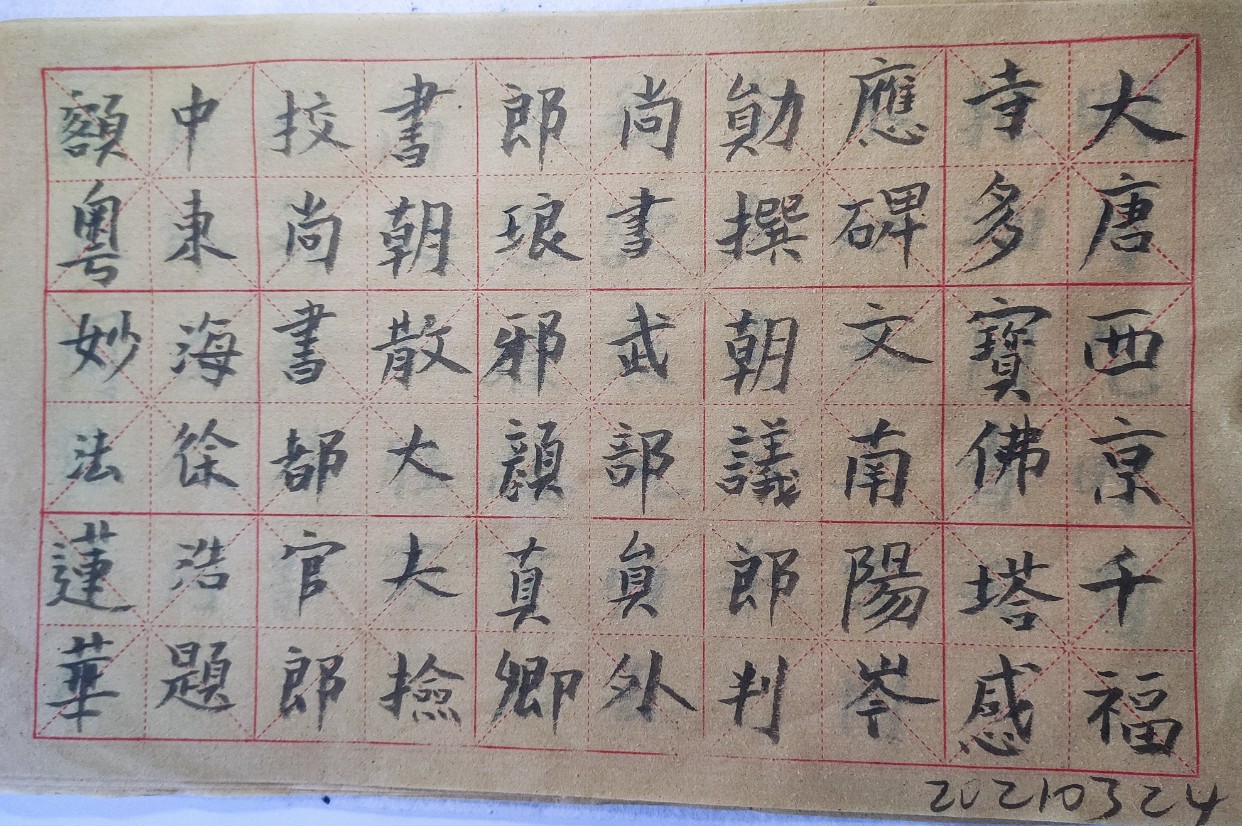 大唐西京千福
寺多寶佛塔感
應碑文南陽岑
勛撰朝議郎判
尚書武部員外
郎琅邪顏真卿
書朝散大夫撿
挍尚書都官郎
中東海徐浩題
額粵妙法蓮華
20210324